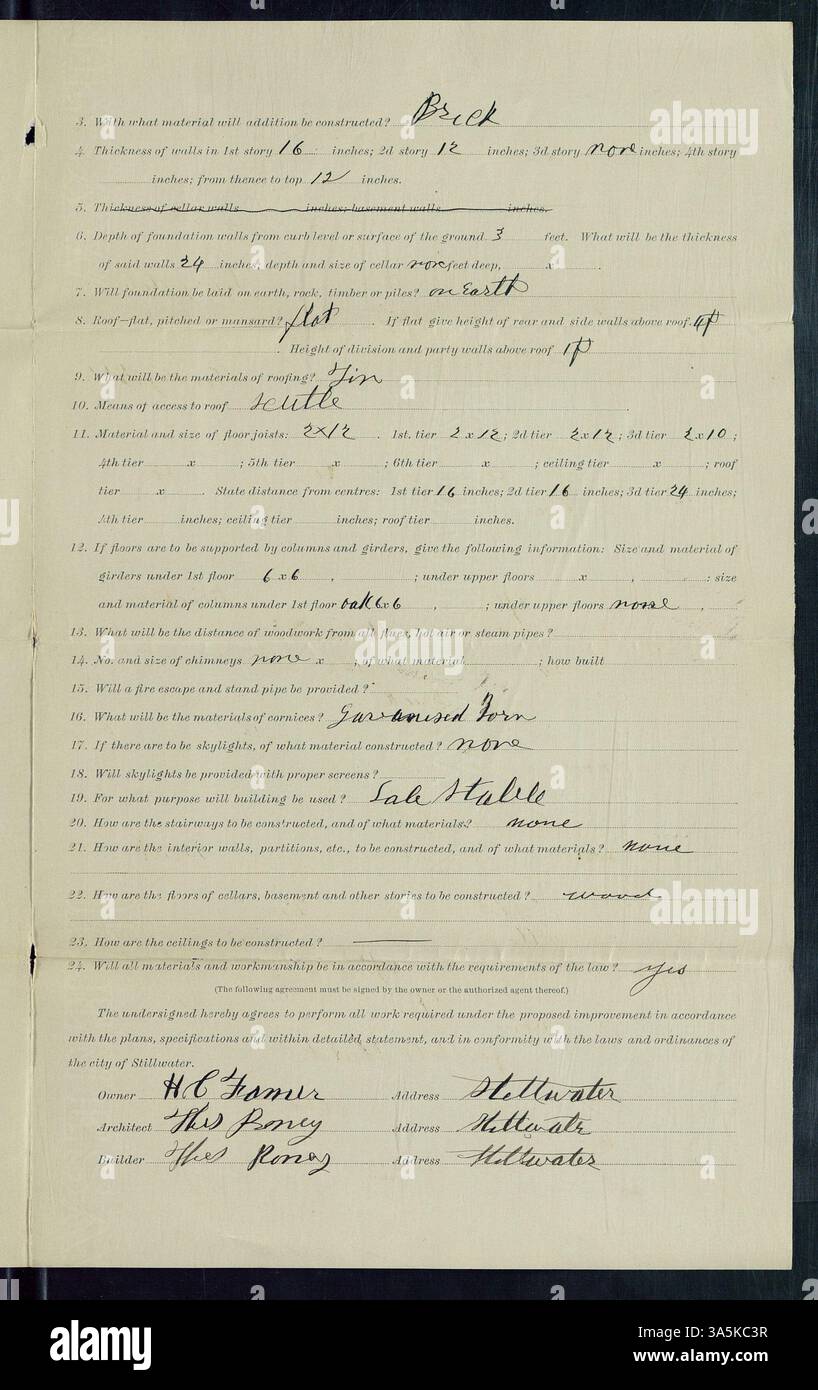 3. With what material will addition be constructed? Brick
4. Thickness of walls in 1st story 16 inches; 2d story 12 inches; 3d story none inches; 4th story
inches; from thence to top 12 inches.
5. Thickness of cellar walls inches; basement walls inches.
6. Depth of foundation walls from curb level or surface of the ground 3 feet. What will be the thickness
of said walls 24 inches, depth and size of cellar none feet deep, x .
7. Will foundation be laid on earth, rock, timber or piles? on Earth
8. Roof—flat, pitched or mansard? flat . If flat give height of rear and side walls above roof. 4ft
. Height of division and party walls above roof 1ft
9. What will be the materials of roofing? Tin
10. Means of access to roof Scutle
11. Material and size of floor joists: 2x12 . 1st. tier 2 x 12; 2d tier 2x12; 3d tier 2x10;
4th tier x ; 5th tier x ; 6th tier x ; ceiling tier x ; roof
tier x . State distance from centres: 1st tier 16 inches; 2d tier 16 inches; 3d tier 24 inches;
4th tier inches; ceiling tier inches; roof tier inches.
12. If floors are to be supported by columns and girders, give the following information: Size and material of
girders under 1st floor 6 x 6 , ; under upper floors x , ; size
and material of columns under 1st floor oak 6x6 , ; under upper floors none ,
13. What will be the distance of woodwork from all flues, hot air or steam pipes?
14. No. and size of chimneys none x ; of what material ; how built
15. Will a fire escape and stand pipe be provided?
16. What will be the materials of cornices?
17. If there are to be skylights, of what material constructed? none
18. Will skylights be provided with proper screens?
19. For what purpose will building be used? Sale Stable
20. How are the stairways to be constructed, and of what materials? none
21. How are the interior walls, partitions, etc., to be constructed, and of what materials? none
22. How are the floors of cellars, basement and other stories to be constructed? wood
23. How are the ceilings to be constructed? —
24. Will all materials and workmanship be in accordance with the requirements of the law? yes
(The following agreement must be signed by the owner or the authorized agent thereof.)
The undersigned hereby agrees to perform all work required under the proposed improvement in accordance
with the plans, specifications and within detailed statement, and in conformity with the laws and ordinances of
the city of Stillwater.
Owner H C Address Stillwater
Architect Thos Address Stillwater
Builder Thos Address Stillwater
alamy
alamy
alamy
alamy
alamy
Image ID: 3A5KC3R
www.alamy.com